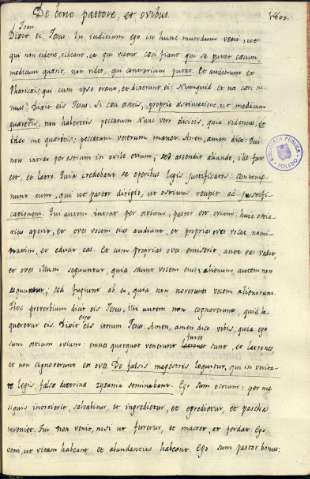 De bono pastore, et ovibus.
Joan.
Dixit ei Jesus. In judicium ego in hunc mundum veni, ut
qui non vident, videant, et qui vident caeci fiant
medicum quaerit, non videt, qui contrarium putat. Et audierunt ex
Pharisaeis, qui cum ipso erant, et dixerunt ei: Numquid et nos caeci su-
mus? Dixit eis Jesus. Si caeci essetis, propria aestimatione, et medicum
quaeretis, non haberetis peccatum. Nunc vero dicitis, quia videmus, et
ideo me quaeritis; peccatum vestrum manet. Amen, amen dico. Qui
non intrat per ostium in ovile ovium, sed ascendit aliunde, ille fur
est, et latro. Quia credebant ex operibus legis justificari
ut pastor
Qui autem intrat per ostium, pastor est ovium, huic ostia-
rius aperit, et oves vocem ejus audiunt, et proprias oves vocat nomi-
natim, et educit eas. Et cum proprias oves emiserit, ante eas vadit,
et oves illum sequuntur, quia sciunt vocem ejus, alienum autem non
sequuntur, sed fugiunt ab eo, quia non noverunt vocem alienorum.
Hoc proverbium dixit eis Jesus. Illi autem non cognoverunt, quid lo-
queretur eis. Dixit eis iterum Jesus. Amen, amen dico vobis, quia ego
sum ostium ovium. Omnes quotquot venerunt fures sunt, et latrones
et non cognoverunt eos oves. De falsis magistris loquitur, qui in vinea
legis falsa doctrina zizania seminabant. Ego sum ostium: per me
si quis introierit, salvabitur, et ingredietur, et egredietur, et pascua
inveniet. Fur non venit, nisi ut furetur, et mactet, et perdat. Ego
veni, ut vitam habeant, et abundantius habeant. Ego sum pastor bonus.
BIBLIOTECA PUBLICA
TOLEDO